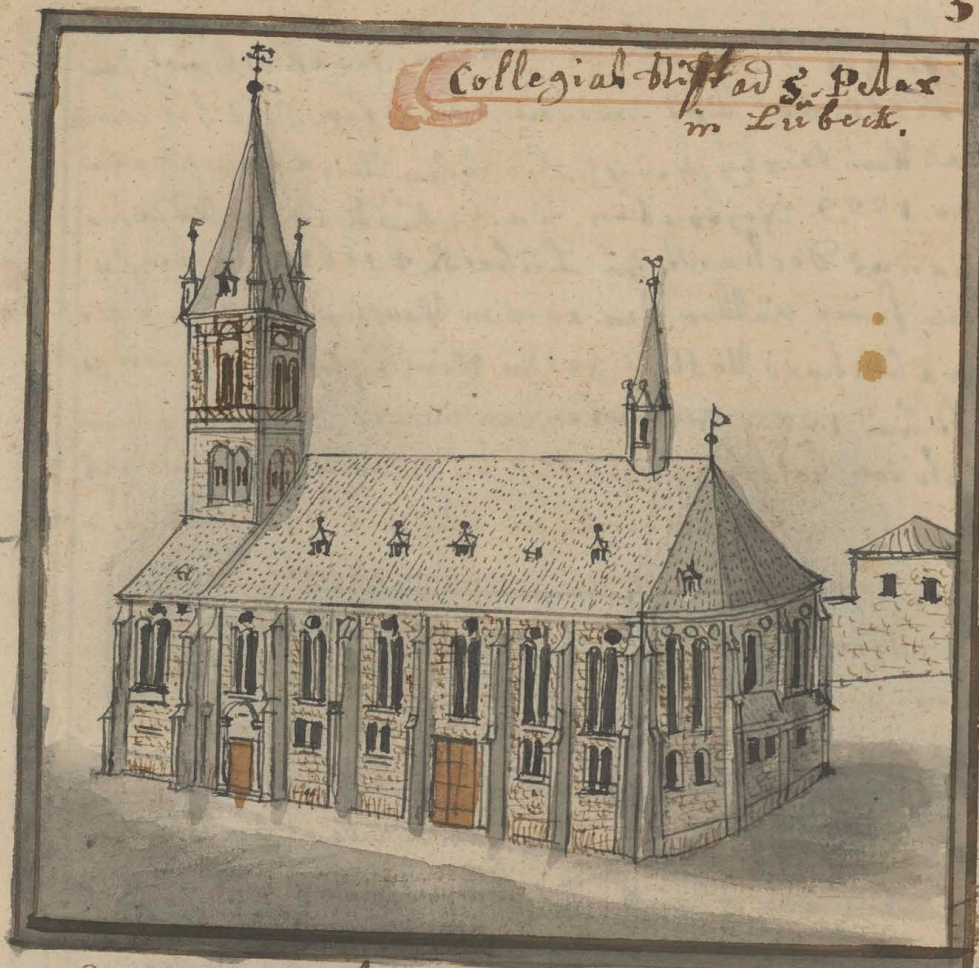 3
Collegial Stifft ad S. Peter
in Lübeck.